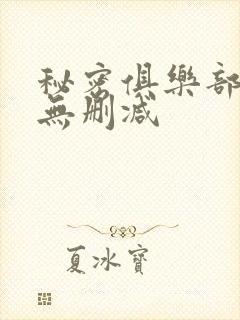 秘密俱樂部
無刪減
夏冰寶